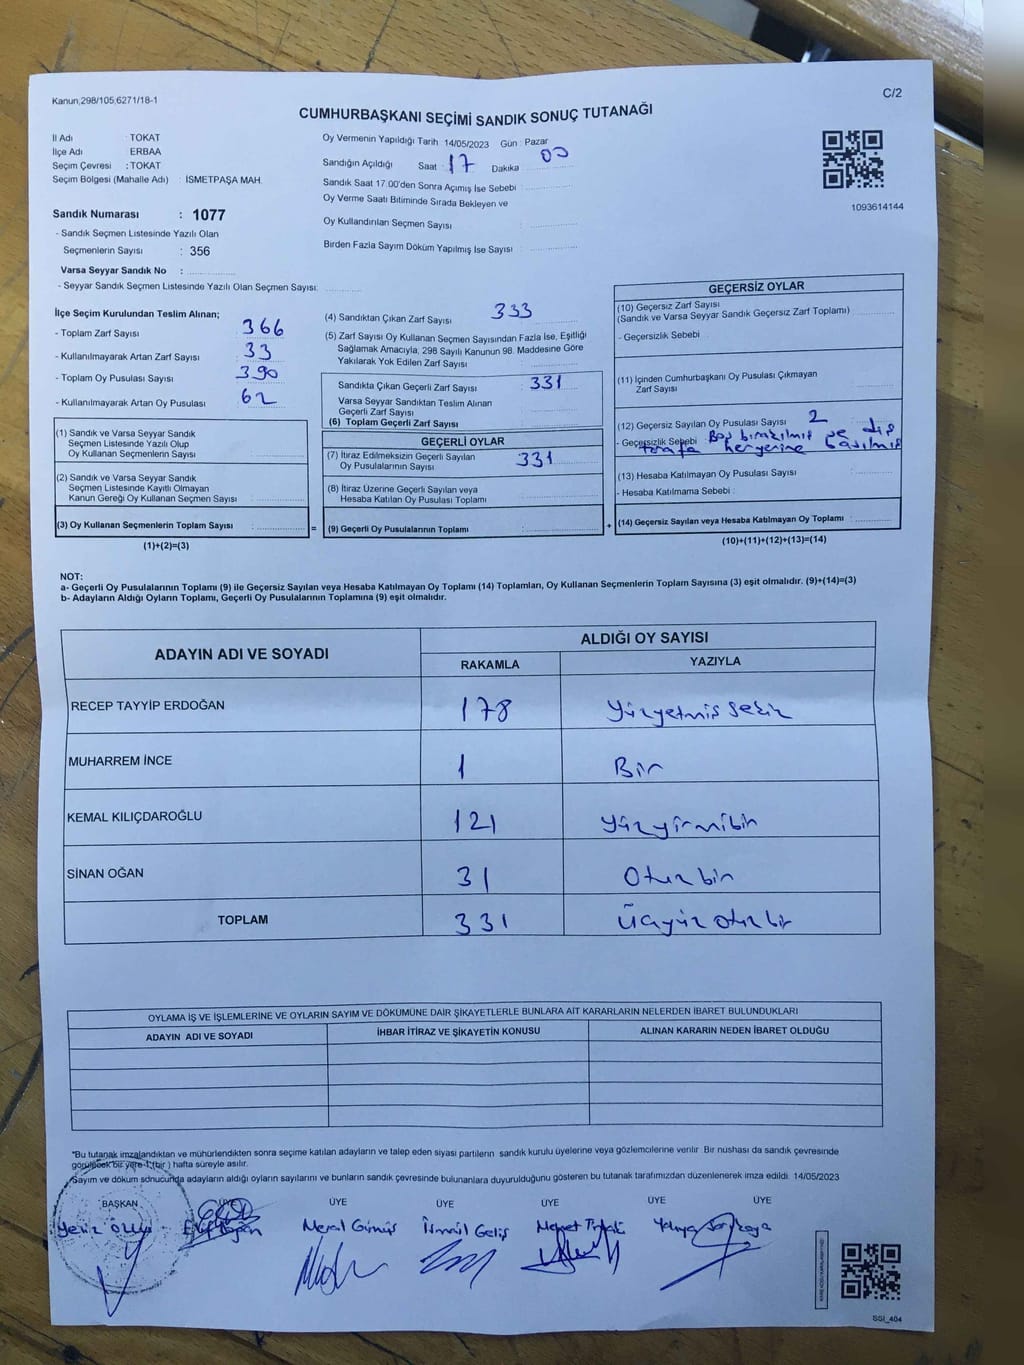 Kanun,298/105,6271/18-1
C/2
CUMHURBAŞKANI SEÇİMİ SANDIK SONUÇ TUTANAĞI
İl Adı : TOKAT
İlçe Adı : ERBAA
Seçim Çevresi : TOKAT
Seçim Bölgesi (Mahalle Adı) : İSMETPAŞA MAH.
Sandık Numarası : 1077
- Sandık Seçmen Listesinde Yazılı Olan
Seçmenlerin Sayısı : 356
Varsa Seyyar Sandık No :
- Seyyar Sandık Seçmen Listesinde Yazılı Olan Seçmen Sayısı:
Oy Vermenin Yapıldığı Tarih: 14/05/2023 Gün : Pazar
Sandığın Açıldığı Saat : 17 Dakika : 00
Sandık Saat 17.00'den Sonra Açımış İse Sebebi :
Oy Verme Saati Bitiminde Sırada Bekleyen ve
Oy Kullandırılan Seçmen Sayısı :
Birden Fazla Sayım Döküm Yapılmış İse Sayısı :
1093614144
İlçe Seçim Kurulundan Teslim Alınan;
- Toplam Zarf Sayısı : 366
- Kullanılmayarak Artan Zarf Sayısı : 33
- Toplam Oy Pusulası Sayısı : 390
- Kullanılmayarak Artan Oy Pusulası : 62
(1) Sandık ve Varsa Seyyar Sandık
Seçmen Listesinde Yazılı Olup
Oy Kullanan Seçmenlerin Sayısı :
(2) Sandık ve Varsa Seyyar Sandık
Seçmen Listesinde Kayıtlı Olmayan
Kanun Gereği Oy Kullanan Seçmen Sayısı :
(3) Oy Kullanan Seçmenlerin Toplam Sayısı :
(1)+(2)=(3)
=
(4) Sandıktan Çıkan Zarf Sayısı : 333
(5) Zarf Sayısı Oy Kullanan Seçmen Sayısından Fazla İse, Eşitliği
Sağlamak Amacıyla, 298 Sayılı Kanunun 98. Maddesine Göre
Yakılarak Yok Edilen Zarf Sayısı :
Sandıkta Çıkan Geçerli Zarf Sayısı : 331
Varsa Seyyar Sandıktan Teslim Alınan
Geçerli Zarf Sayısı :
(6) Toplam Geçerli Zarf Sayısı :
GEÇERLİ OYLAR
(7) İtiraz Edilmeksizin Geçerli Sayılan
Oy Pusulalarının Sayısı : 331
(8) İtiraz Üzerine Geçerli Sayılan veya
Hesaba Katılan Oy Pusulası Toplamı :
(9) Geçerli Oy Pusulalarının Toplamı :
+
GEÇERSİZ OYLAR
(10) Geçersiz Zarf Sayısı
(Sandık ve Varsa Seyyar Sandık Geçersiz Zarf Toplamı) :
- Geçersizlik Sebebi :
(11) İçinden Cumhurbaşkanı Oy Pusulası Çıkmayan
Zarf Sayısı :
(12) Geçersiz Sayılan Oy Pusulası Sayısı : 2
- Geçersizlik Sebebi : Boş bırakılmış ve dış
tarafa heryerine basılmış
(13) Hesaba Katılmayan Oy Pusulası Sayısı :
- Hesaba Katılmama Sebebi :
(14) Geçersiz Sayılan veya Hesaba Katılmayan Oy Toplamı :
(10)+(11)+(12)+(13)=(14)
NOT:
a- Geçerli Oy Pusulalarının Toplamı (9) ile Geçersiz Sayılan veya Hesaba Katılmayan Oy Toplamı (14) Toplamları, Oy Kullanan Seçmenlerin Toplam Sayısına (3) eşit olmalıdır. (9)+(14)=(3)
b- Adayların Aldığı Oyların Toplamı, Geçerli Oy Pusulalarının Toplamına (9) eşit olmalıdır.
ADAYIN ADI VE SOYADI
ALDIĞI OY SAYISI
RAKAMLA YAZIYLA
RECEP TAYYİP ERDOĞAN 178 Yüzyetmiş sekiz
MUHARREM İNCE 1 Bir
KEMAL KILIÇDAROĞLU 121 Yüzyirmibir
SİNAN OĞAN 31 Otuzbir
TOPLAM 331 Üçyüz otuz bir
OYLAMA İŞ VE İŞLEMLERİNE VE OYLARIN SAYIM VE DÖKÜMÜNE DAİR ŞİKAYETLERLE BUNLARA AİT KARARLARIN NELERDEN İBARET BULUNDUKLARI
ADAYIN ADI VE SOYADI İHBAR İTİRAZ VE ŞİKAYETİN KONUSU ALINAN KARARIN NEDEN İBARET OLDUĞU
*Bu tutanak imzalandıktan ve mühürlendikten sonra seçime katılan adayların ve talep eden siyasi partilerin sandık kurulu üyelerine veya gözlemcilerine verilir. Bir nushası da sandık çevresinde
görülebilecek bir yere 1 (bir ) hafta süreyle asılır.
Sayım ve döküm sonucunda adayların aldığı oyların sayılarını ve bunların sandık çevresinde bulunanlara duyurulduğunu gösteren bu tutanak tarafımızdan düzenlenerek imza edildi. 14/05/2023
BAŞKAN ÜYE ÜYE ÜYE ÜYE ÜYE ÜYE
Meral Gümüş İsmail Geliş
SSI_404